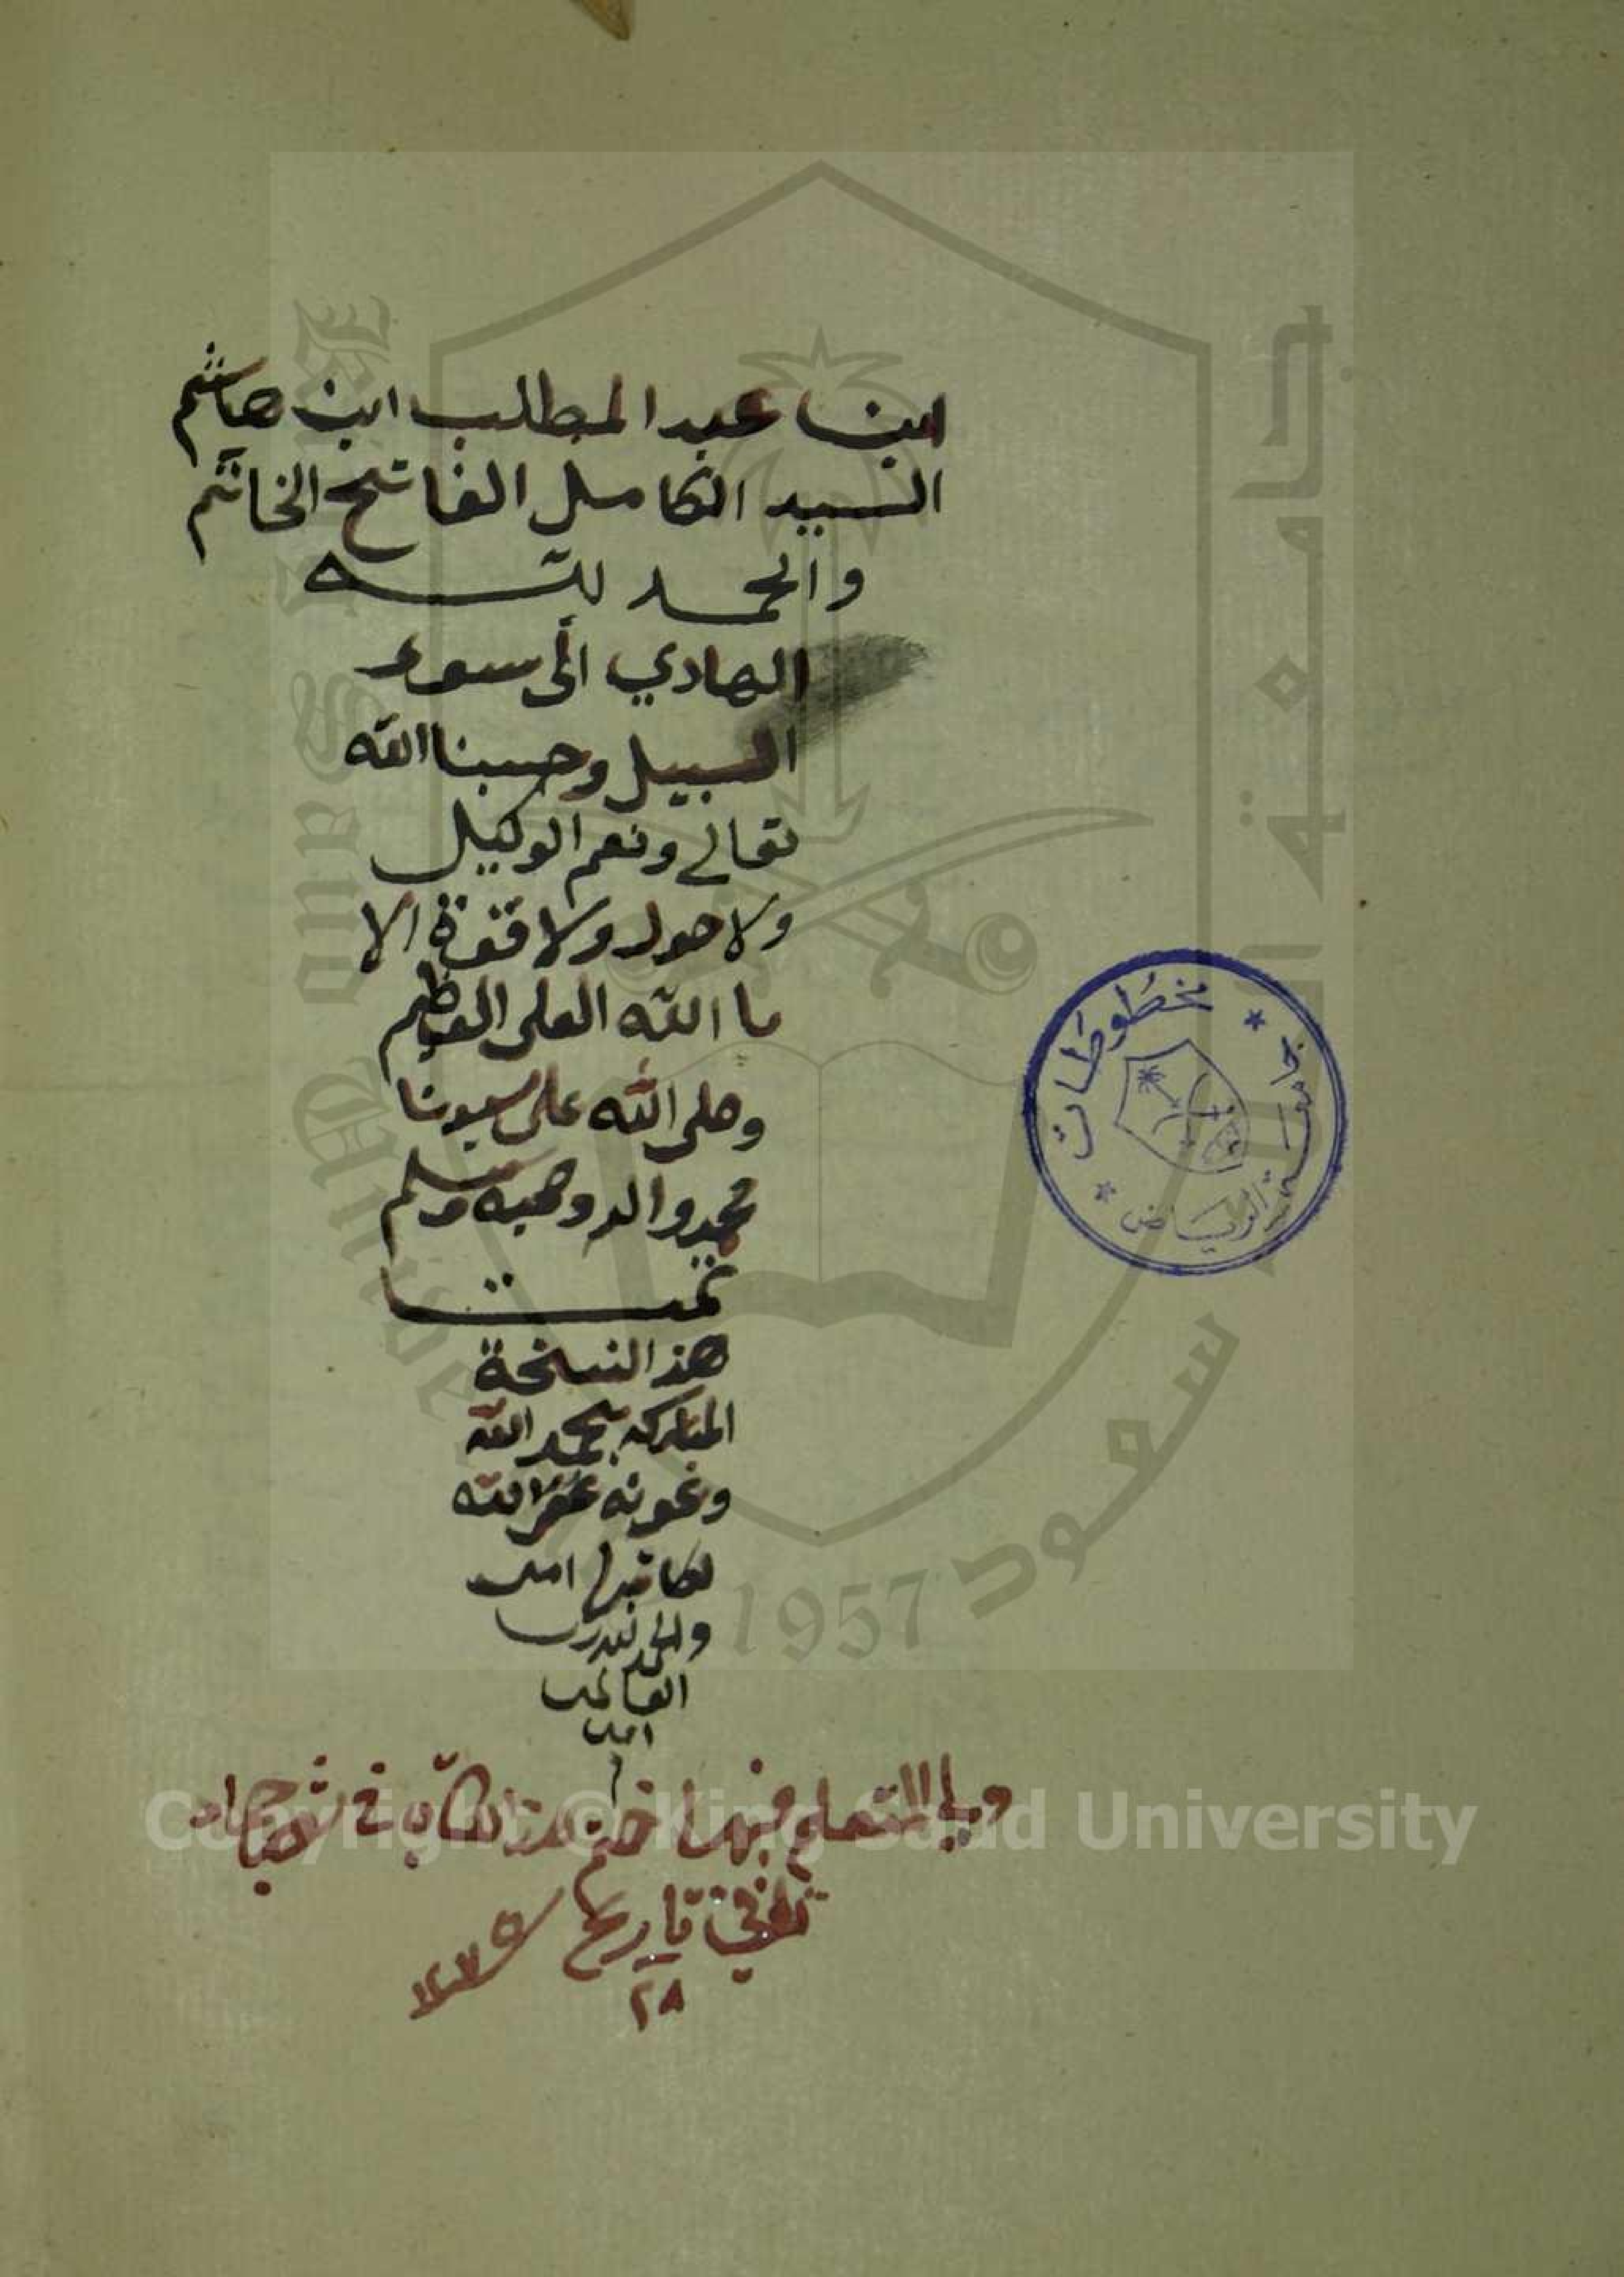 ابن عبد المطلب ابن هاشم
السيد الكامل الفاتح الخاتم
والحمد لله
الهادي الى سوء
السبيل وحسبنا الله
تعالى ونعم الوكيل
ولا حول ولا قوة الا
با الله العلى العظيم
وصلى الله على سيدنا
محمد واله وصحبه وسلم
تمت
هذ النسخة
المباركه بحمد الله
وعونه غفر الله
لكاتبها امين
والحمد لله رب
العالمين
امين
في شهر جماد
في تاريخ
٢٨
مخطوطات
جامعة الرياض
جامعة الملك سعود
King Saud University
1957
Copyright © King Saud University